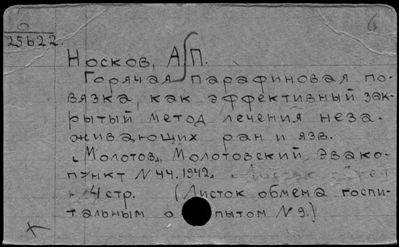 6
25622.
Носков, А.П.
Горячая парафиновая по-
вязка, как эффективный зак-
рытый метод лечения неза-
живающих ран и язв.
„Молотов„ Молотовский Эвако-
пункт № 44. 1942.
4 стр. (Листок обмена госпи-
тальным опытом № 9.)